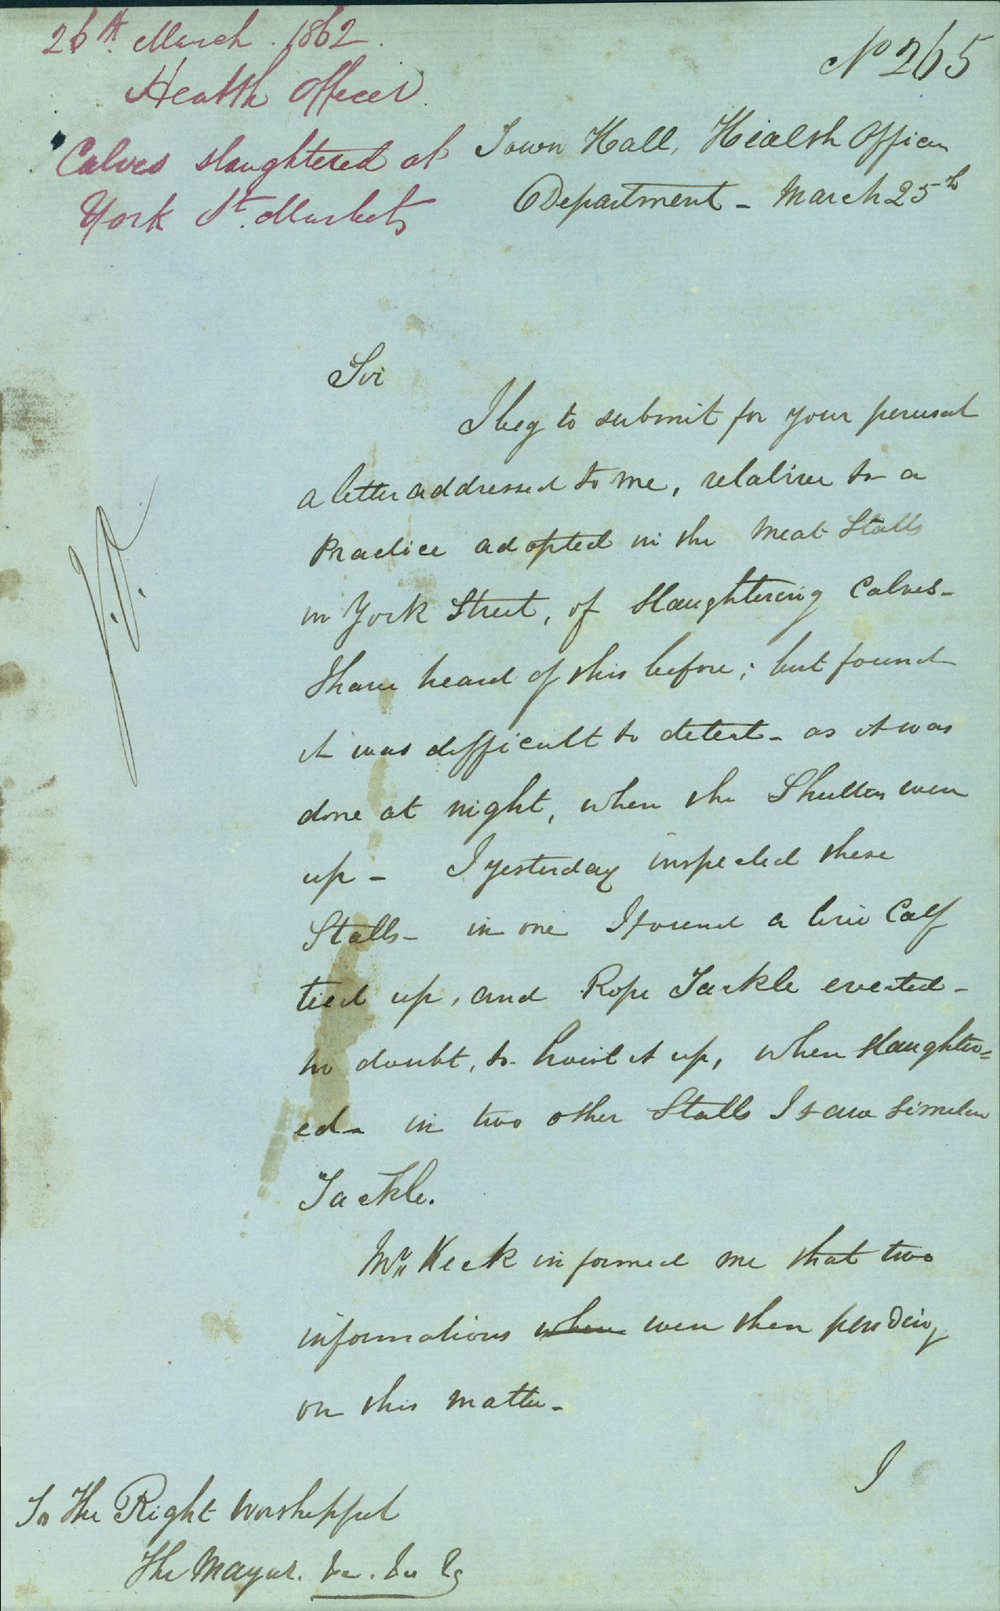 26th March. 1862.
Health Officer.
Calves slaughtered at
York St. Markets
No 265
Town Hall, Health Officer
Department - March 25th
Sir
I beg to submit for your perusal
a letter addressed to me, relative to a
Practice adopted in the Meat Stalls
in York Street, of Slaughtering Calves -
I have heard of this before; but found
it was difficult to detect - as it was
done at night, when the Shutters were
up - I yesterday inspected these
Stalls - in one I found a live Calf
tied up, and Rope Tackle erected -
no doubt, to hoist it up, when slaughter=
ed - in two other Stalls I saw similar
Tackle.
Mr Keck informed me that two
informations when were then pending
on this matter -
I
To The Right Worshipful
The Mayor. &c. &c &c